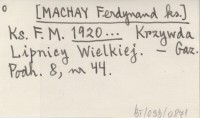 [MACHAY Ferdynand ks.]
Ks. F. M. 1920... Krzywda
Lipnicy Wielkiej. — Gaz.
Podh. 8, nr 44.